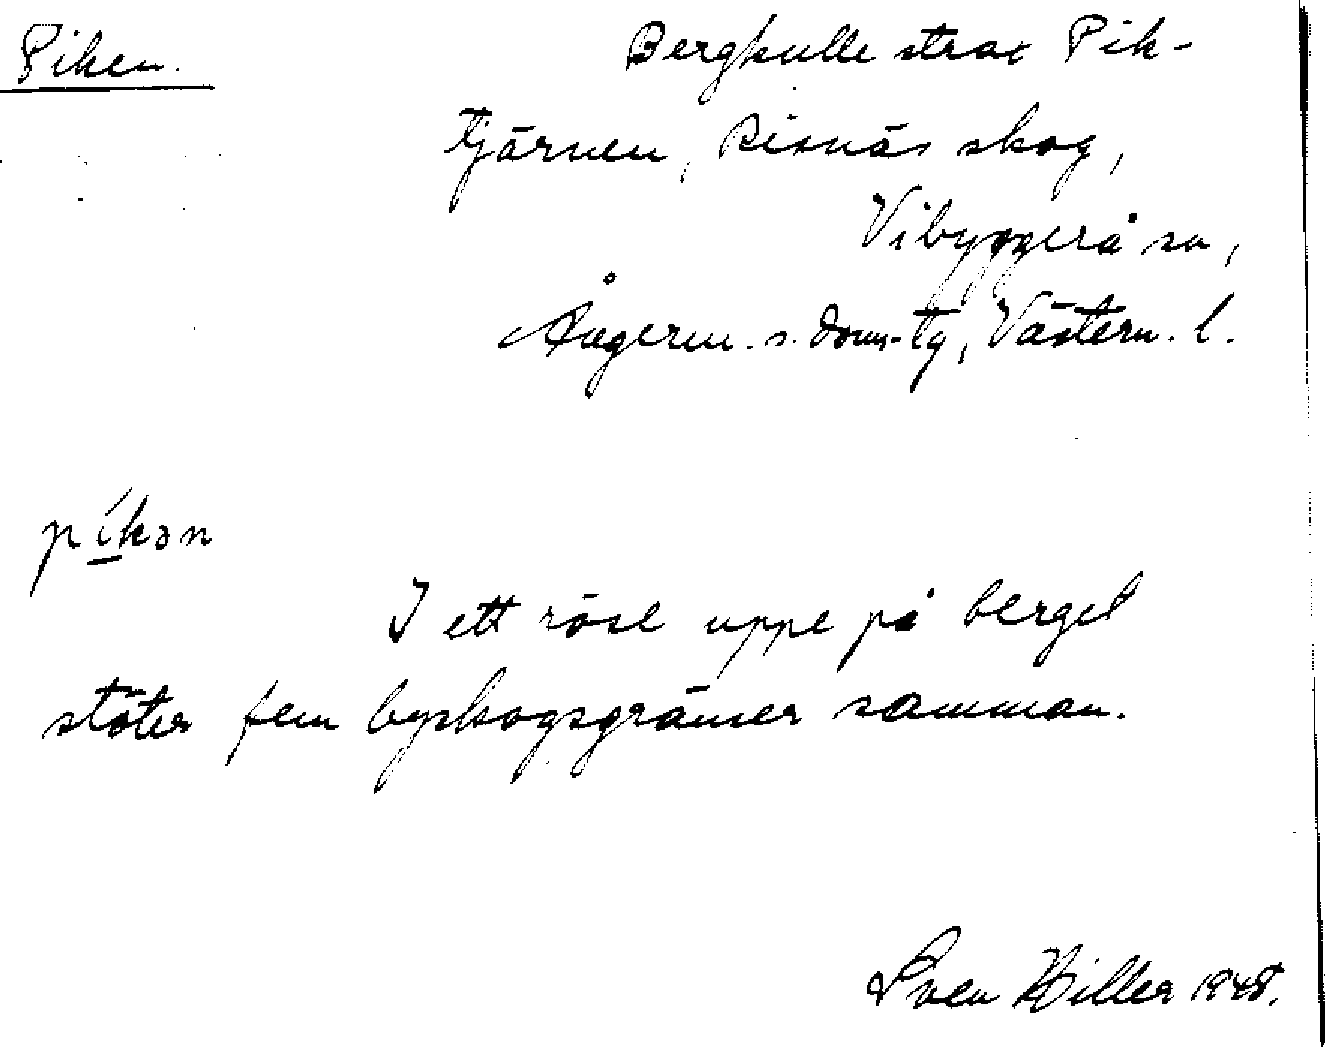 Piken.
Bergkulle strax Pik-
tjärnen, Risnäs skog,
Vibyggerå sn,
Ångerm. s. doms-tg, Västern. l.
píkən
I ett röse uppe på berget
stöter fem byskogsgränser samman.
Sven Hiller 1948.